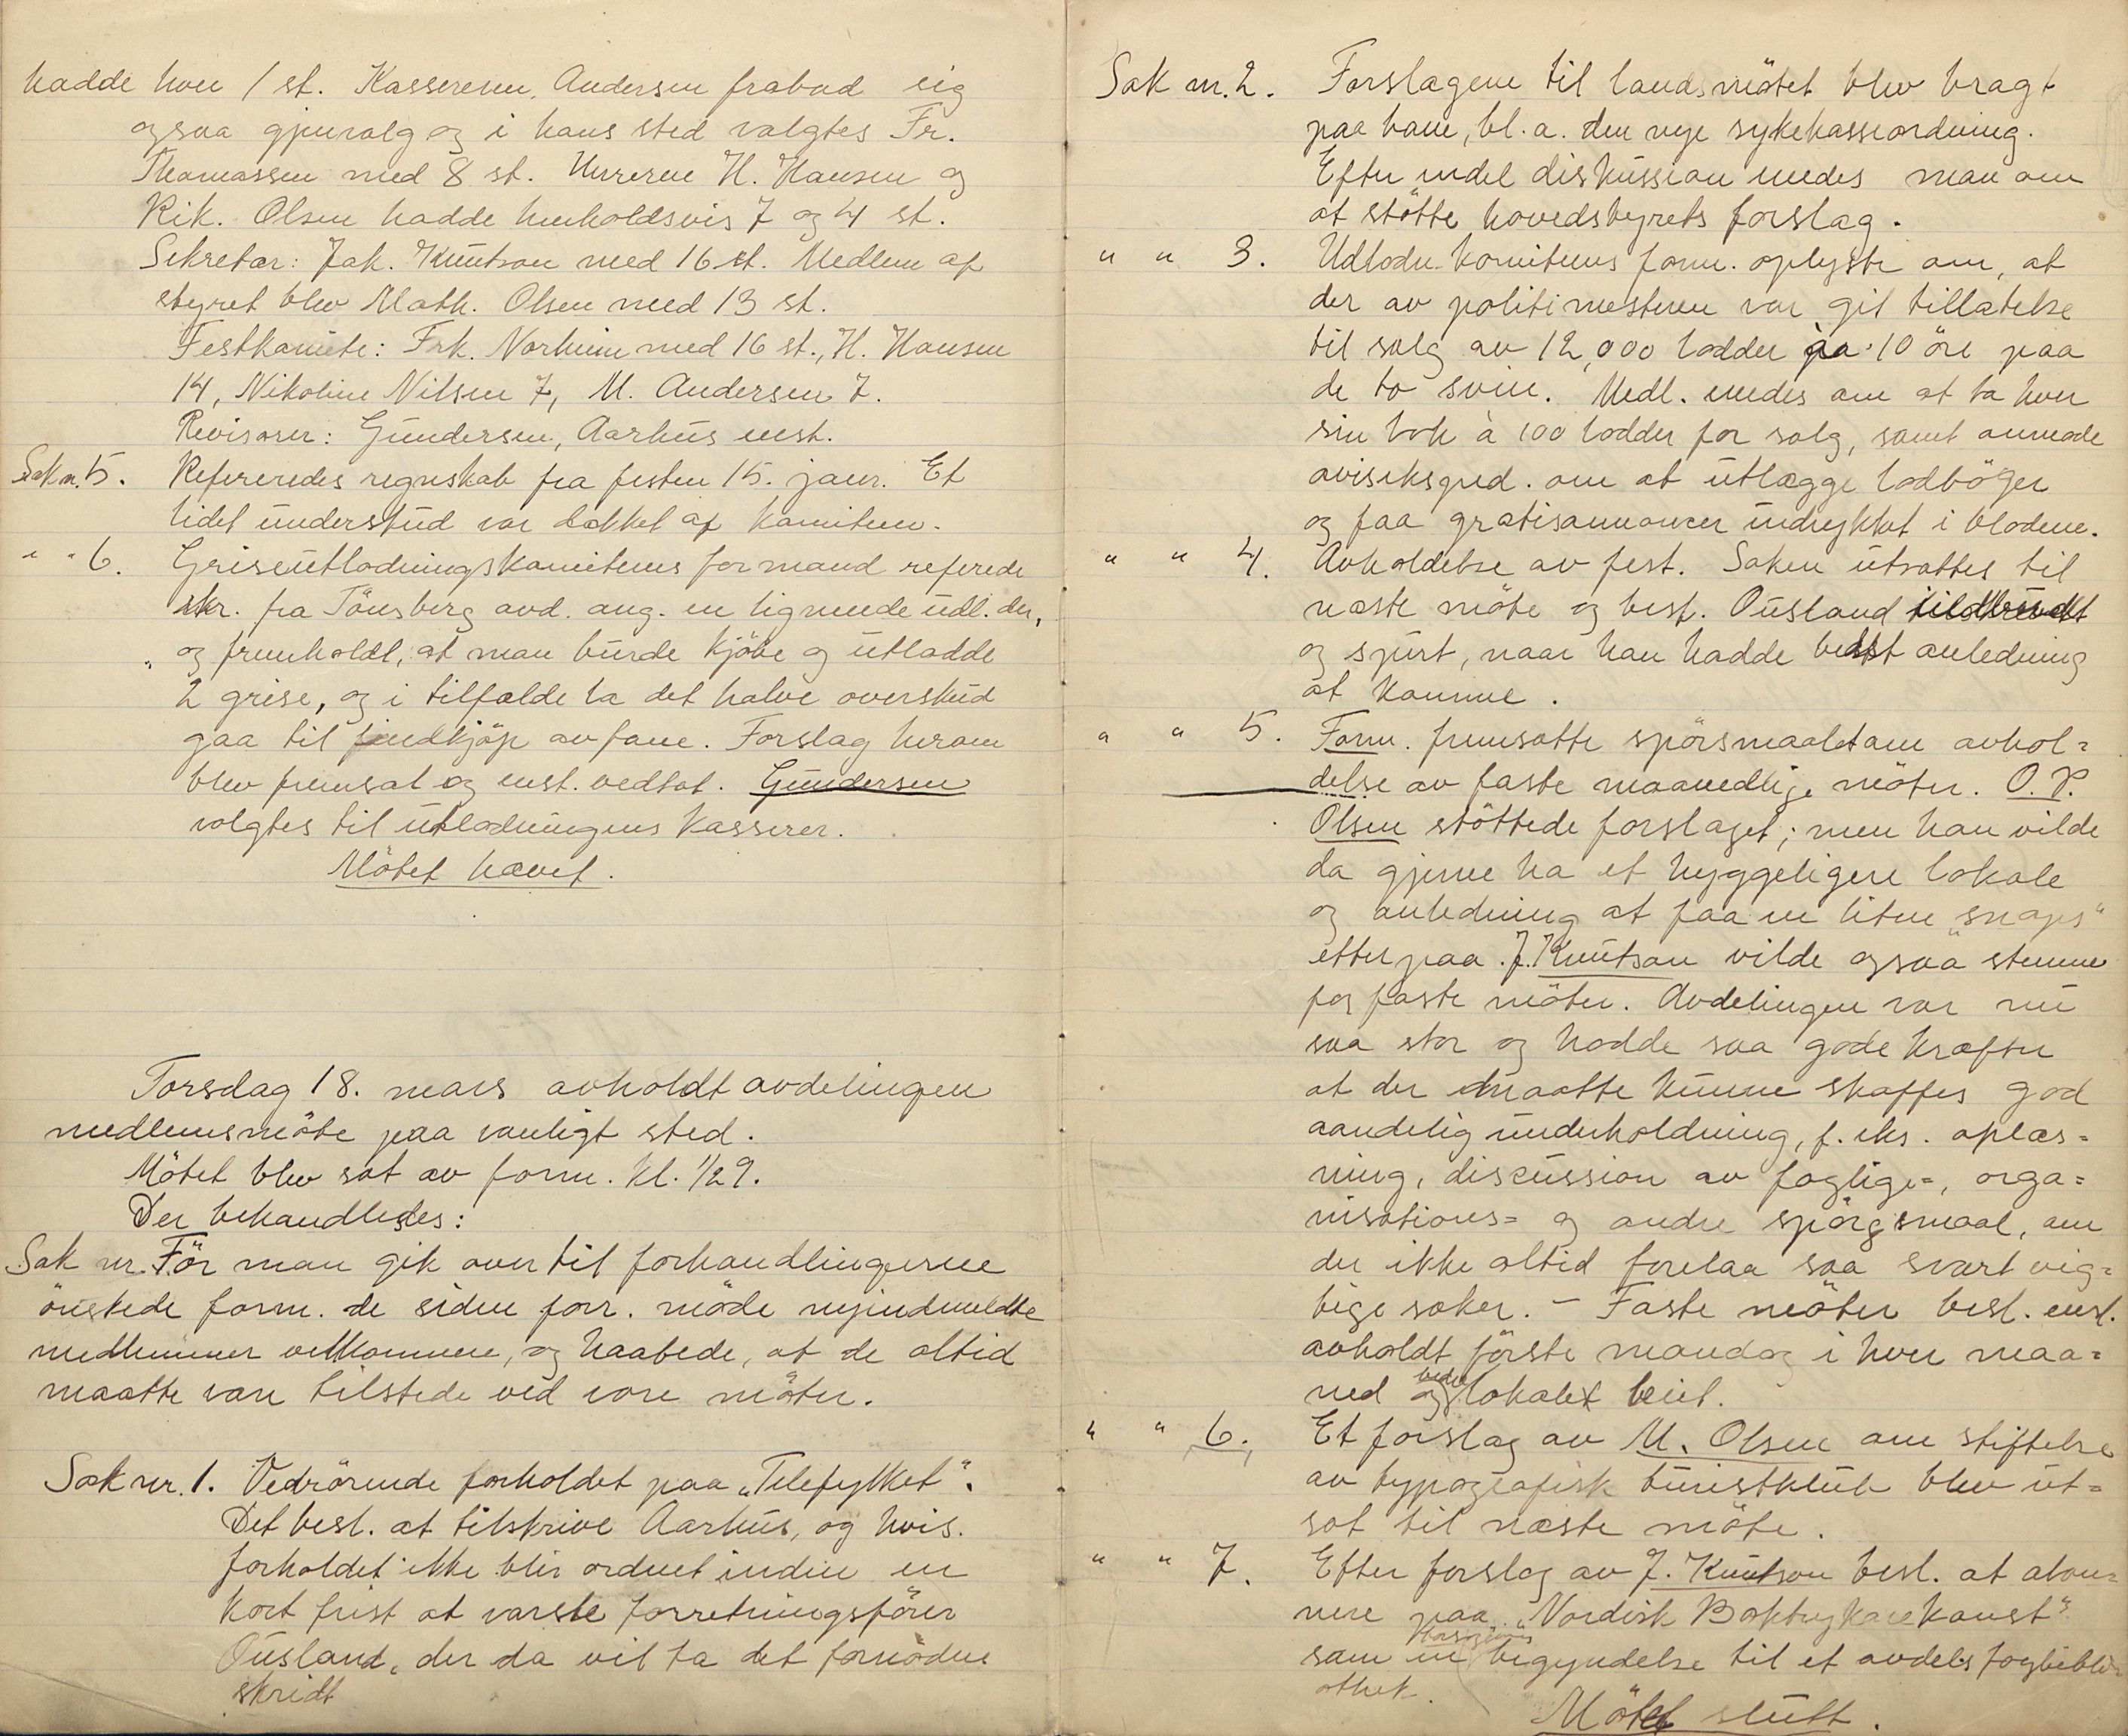 hadde hver 1 st. Kassereren, Andersen frabad sig
ogsaa gjenvalg og i hans sted valgtes Fr.
Thomassen med 8 st. Herrerne H. Hansen og
Rik. Olsen hadde henholdsvis 7 og 4 st.
Sekretær: Jak. Knutson med 16 st. Medlem af
styret blev Math. Olsen med 13 st.
Festkomite: Frk. Norheim med 16 st., H. Hansen
14, Nikoline Nilsen 7, M. Andersen 7.
Revisorer: Gundersen, Aarhus enst.
Sak n. 5. Refereredes regnskab fra festen 15. janr. Et
lidet underskud var dækket af komiteen.
" " 6. Griseutlodningskomiteens formand referede
skr. fra Tönsberg avd. ang. en lignende udl. der,
og fremholdt, at man burde kjöbe og utlodde
2 grise, og i tilfælde la det halve overskud
gaa til indkjöp av fane. Forslag herom
blev fremsat og enst. vedtat. Gundersen
valgtes til utlodningens kasserer.
Mötet hævet.
Torsdag 18. mars avholdt avdelingen
medlemsmöte paa vanligt sted.
Mötet blev sat av form. kl. 1/2 9.
Der behandledes:
Sak nr. För man gik over til forhandlingerne
önskede form. de siden forr. möde nyindmeldte
medlemmer velkommen, og haabede, at de altid
maatte være tilstede ved vore möter.
Sak nr. 1. Vedrörende forholdet paa „Telefylket".
Det besl. at tilskrive Aarhus, og hvis
forholdet ikke blir ordnet inden en
kort frist at varsle forretningsförer
Ousland, der da vil ta det fornödne
skridt
Sak nr. 2. Forslagene til landsmötet blev bragt
paa bane, bl. a. den nye sykekasseordning.
Efter endel diskussion enedes man om
at stötte hovedstyrets forslag.
" " 3. Udlodn. komiteens form. oplyste om, at
der av politimesteren var git tillatelse
til salg av 12,000 lodder à 10 öre paa
de to svin. Medl. enedes om at ta hver
sin bok à 100 lodder for salg, samt anmode
aviseksped. om at utlægge lodböger
og faa gratisannoncer indrykket i bladene.
" " 4. Avholdelse av fest. Saken utsattes til
næste möte og besl. Ousland tilskrevet
og spurt, naar han hadde bedst anledning
at komme.
" " 5. Form. fremsatte spörsmaalet om avhol-
delse av faste maanedlige möter. O. P.
Olsen stöttede forslaget; men han vilde
da gjerne ha et hyggeligere lokale
og anledning at faa en liten „snaps"
etterpaa. J. Knutson vilde ogsaa stemme
for faste möter. Avdelingen var nu
saa stor og hadde saa gode kræfter
at der maatte kunne skaffes god
aandelig underholdning, f. eks. oplæs-
ning, discussion av faglige-, orga-
nisations- og andre spörgsmaal, om
der ikke altid forelaa saa svært vig-
tige saker. - Faste möter besl. enst.
avholdt förste mandag i hver maa-
ned og bedre lokalet leiet.
" " 6. Et forslag av M. Olsen om stiftelse
av typografisk turistklub blev ut-
sat til næste möte.
" " 7. Efter forslag av J. Knutson besl. at abon-
nere paa „Nordisk Boktryckarekonst"
som en begyndelse til et avdels fagbibli-
othek.
Mötet slutt.